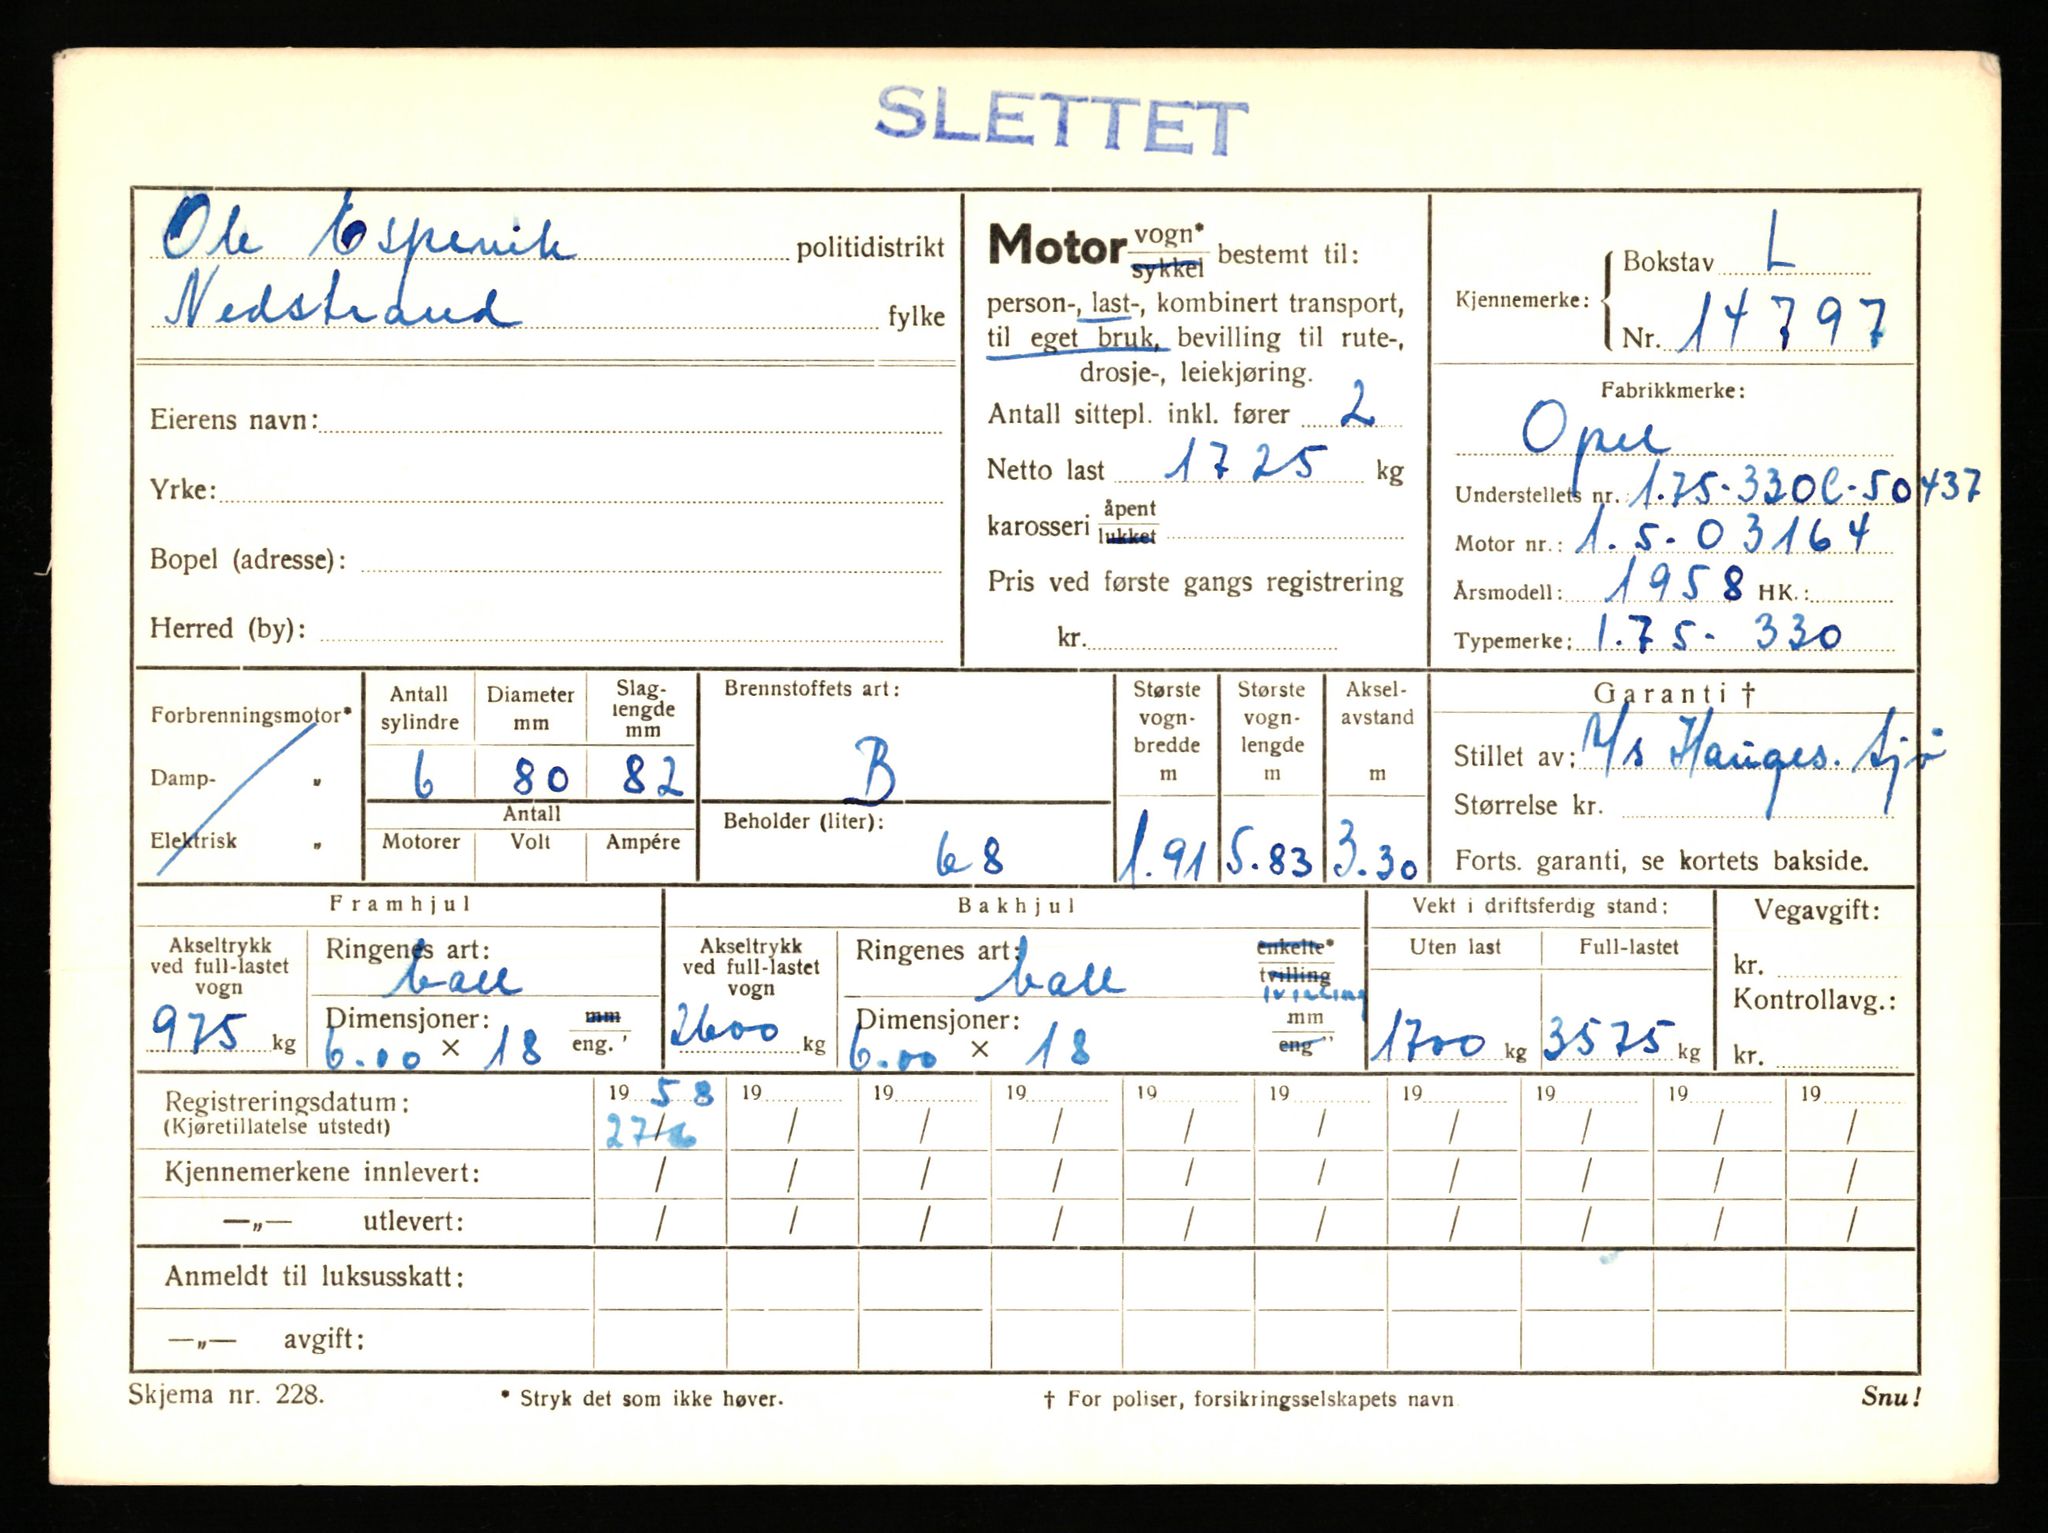 SLETTET
Ole Espevik politidistrikt
Nedstrand fylke
Eierens navn:
Yrke:
Bopel (adresse):
Herred (by):
Motor vogn* sykkel bestemt til:
person-, last-, kombinert transport,
til eget bruk, bevilling til rute-,
drosje-, leiekjøring.
Antall sittepl. inkl. fører 2
Netto last 1725 kg
karosseri åpent lukket
Pris ved første gangs registrering
kr.
Kjennemerke: Bokstav L
Nr. 14797
Fabrikkmerke:
Opel
Understellets nr. 1.75-330C-50437
Motor nr.: 1.5-03164
Årsmodell: 1958 HK.:
Typemerke: 1.75-330
Forbrenningsmotor*
Damp- „
Elektrisk „
Antall sylindre
6
Diameter mm
80
Slag-
lengde
mm
82
Antall
Motorer Volt Ampére
Brennstoffets art:
B
Beholder (liter):
68
Største
vogn-
bredde
m
1.91
Største
vogn-
lengde
m
5.83
Aksel-
avstand
m
3.30
Garanti †
Stillet av: Hauges. Sjø
Størrelse kr.
Forts. garanti, se kortets bakside.
Framhjul
Akseltrykk
ved full-lastet
vogn
975 kg
Ringenes art:
ball
Dimensjoner: mm
6.00 × 18 eng. "
Bakhjul
Akseltrykk
ved full-lastet
vogn
2600 kg
Ringenes art: enkelte*
ball tvilling
tvilling
Dimensjoner: mm
6.00 × 18 eng "
Vekt i driftsferdig stand:
Uten last Full-lastet
1700 kg 3575 kg
Vegavgift:
kr.
Kontrollavg.:
kr.
Registreringsdatum: 19 58 19 19 19 19 19 19 19 19 19
(Kjøretillatelse utstedt) 27/6 / / / / / / / / /
Kjennemerkene innlevert: / / / / / / / / / /
—„— utlevert: / / / / / / / / / /
Anmeldt til luksusskatt:
—„— avgift:
Skjema nr. 228. * Stryk det som ikke høver. † For poliser, forsikringsselskapets navn Snu!